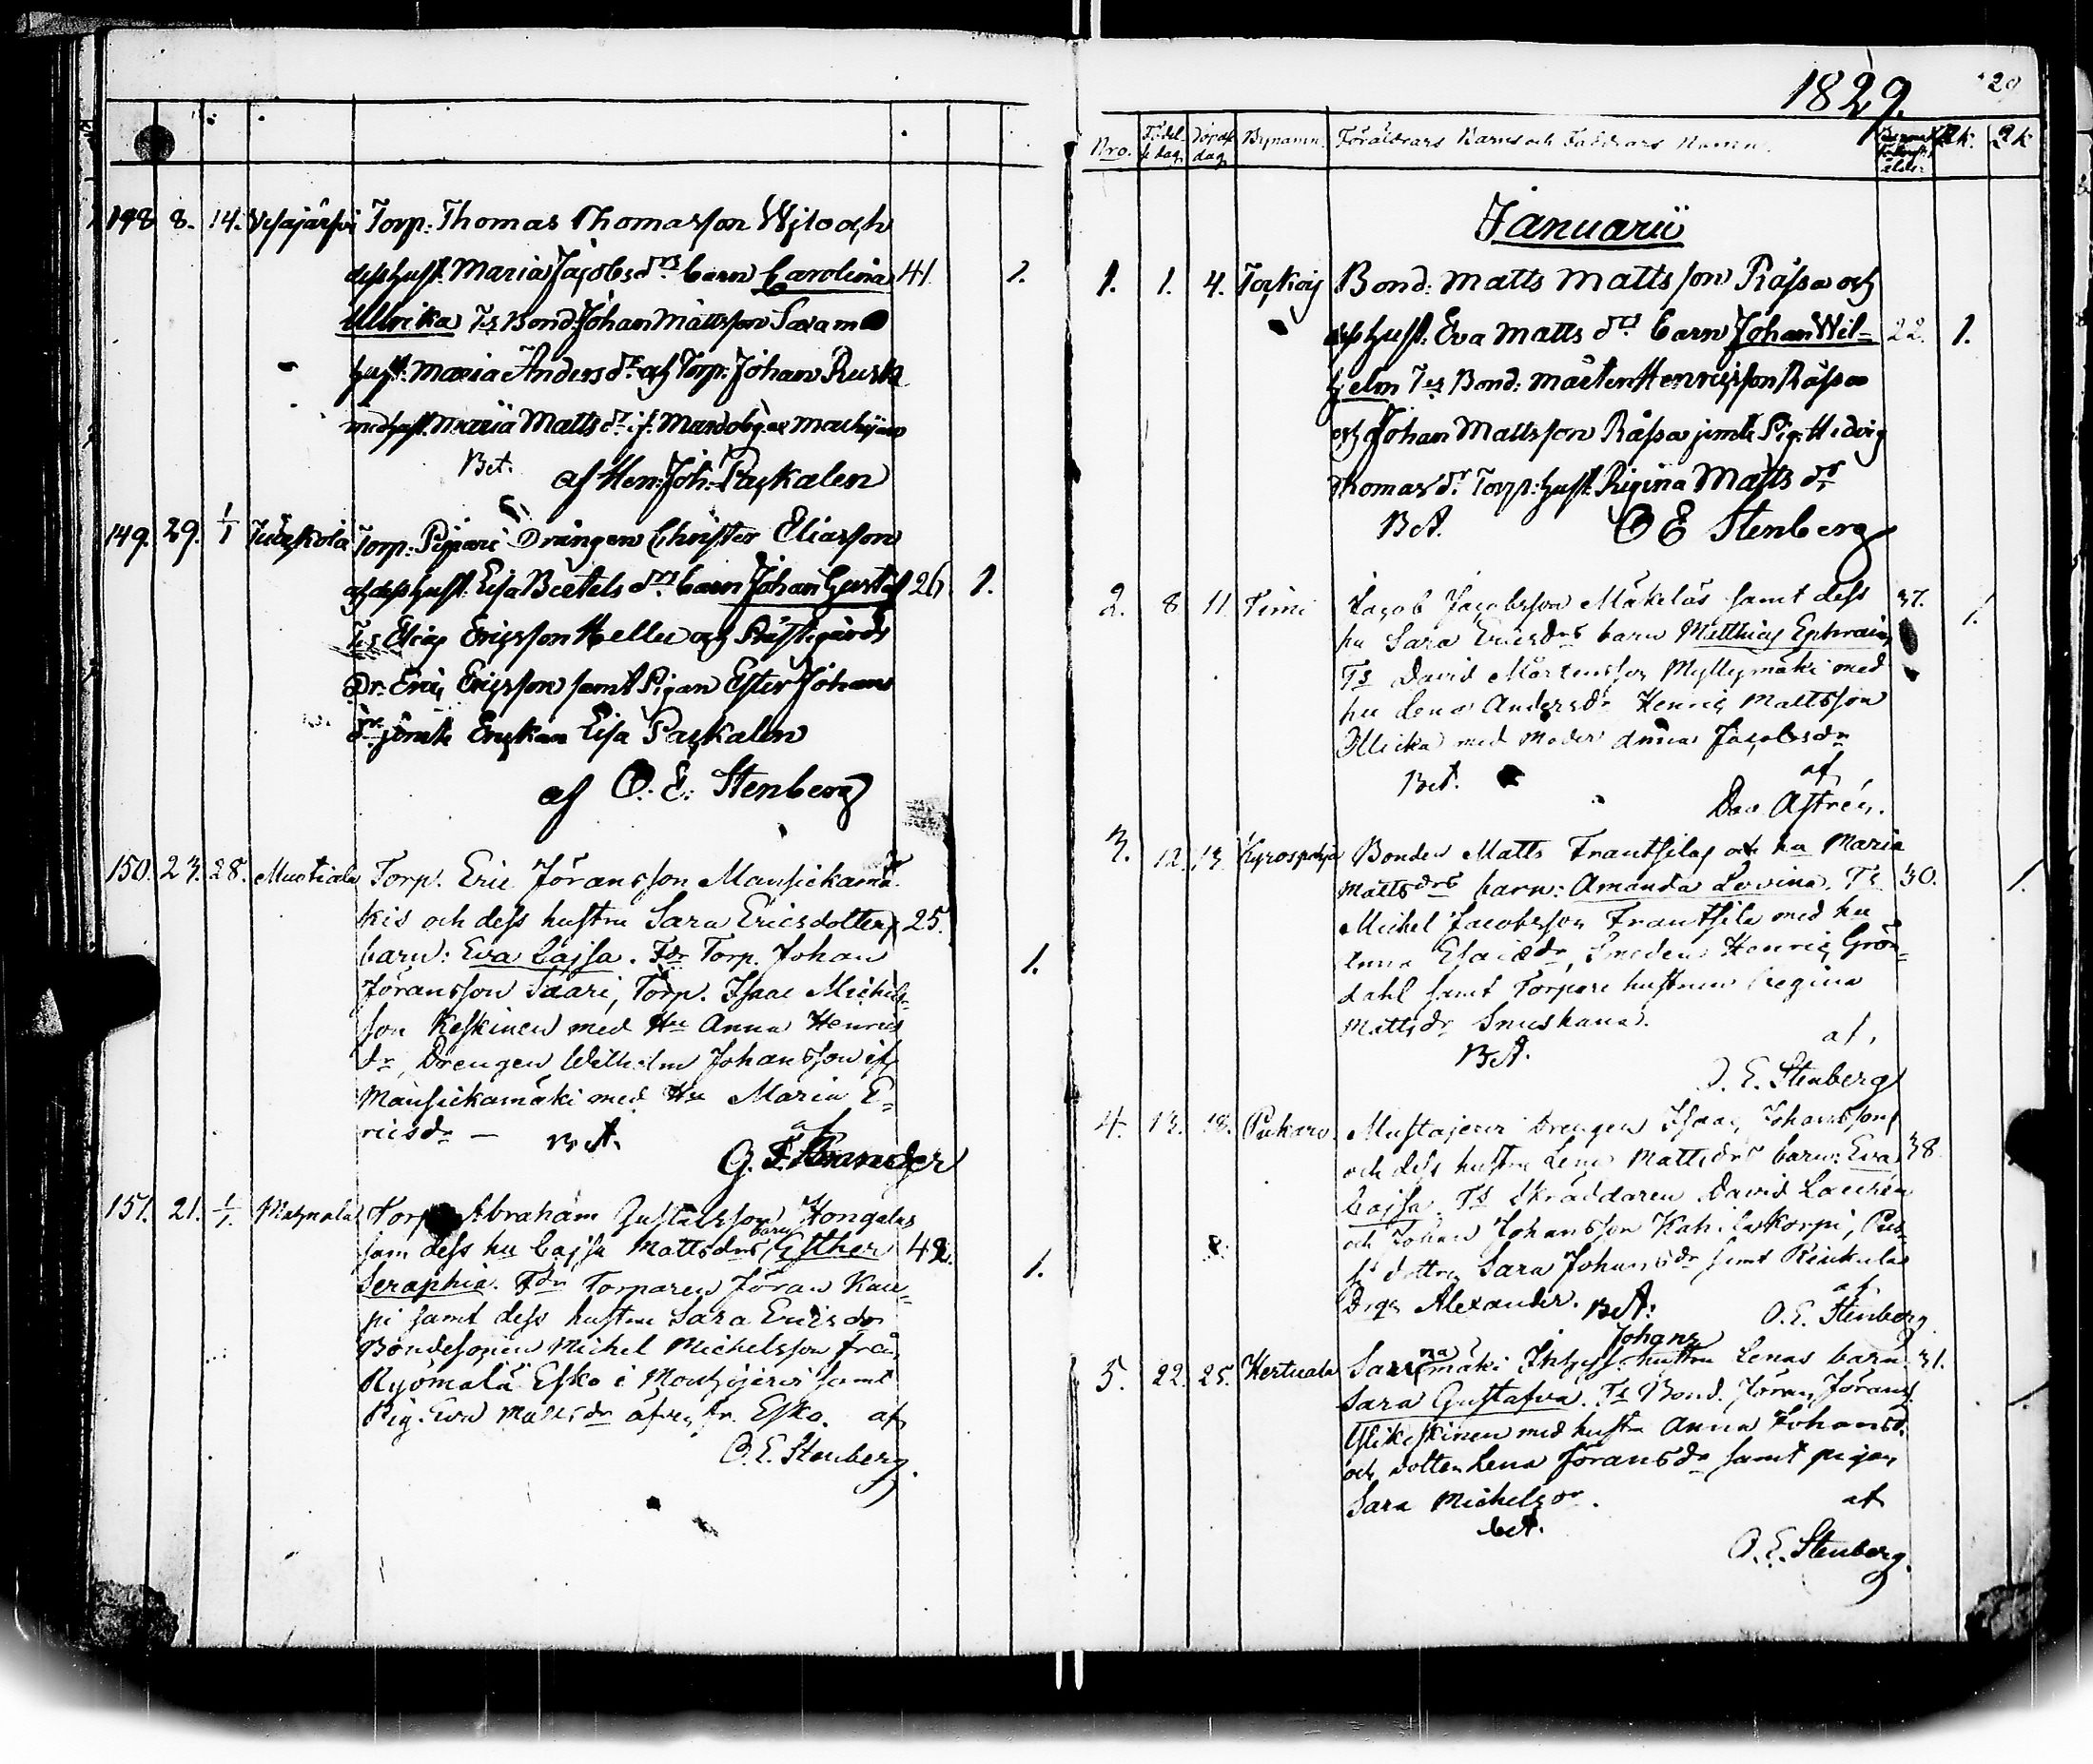 148 8. 14. Vesajärfvi Torp: Thomas Thomasson Wilo och
dess hust. Maria Jacobs drs barn Carolina 41. 1.
Ullrika Ts Bond: Johan Mattsson Saxa m
hust: Maria Anders dr och Torp: Johan Rusk
med hust. Maria Matts dr
Bet. af Hen: Joh: Paskalen
149. 29. 1/1 Torp: Drängen Christer Eliasson
och dess hust. Lisa Bertels drs barn Johan Gustaf 26 1.
Ts Elias Ericsson Heller och Prästegårds
Dr. Eric Ericsson samt Pigan Ester Johans
dr jemte Enckan Lisa Paskalen
af O. E. Stenberg
150. 23. 28. Mustiala Torp. Eric Jöransson Mansickamä
kis och dess hustru Sara Ericsdotters 25.
barn: Eva Cajsa. Fdr Torp. Johan 1.
Jöransson Saari, Torp. Isaac Michels-
son Keskinen med Hu Anna Henrics
dr, Drengen Wilhelm Johansson if
Mansickamäki med Hu Maria E=
ricsdr — Bet. af
G. F. Strander
151. 21. 1/1. Torp Abraham Gustafsson Hongalas
sam dess hu Cajsa Mattsdrs barn Esther 42.
Seraphia. Fdr Torparen Jöran Kau= 1.
pi samt dess hustru Sara Ericsdr
Bondesonen Michel Michelsson från
Ryömälä Esko i samt
Pig. Eva Mattsdr äfven fr. Esko. af
O. E. Stenberg.
1829. 29
Nro. Födel se dag. Döpelse dag Bynamn. Föräldrars Barns och Faddrars Namn. Barnaföderskans ålder M.k. Q.k
Januarii
1. 1. 4. Torkoij Bond: Matts Mattsson Råssa och
dess hust: Eva Matts drs barn Johan Wil= 22. 1.
hjelm Ts Bond: Mårten Henricsson Råssa
och Johan Mattsson Råssa jemte Pig: Hedvig
Thomas dr Torp: hust: Regina Matts dr
Bet. O E Stenberg
2. 8 11. Jacob Jacobsson Mäkeläs samt dess 37. 1.
hu Sara Ericsdrs barn Matthias Ephraim
Ts David Mårtensson Myllymäki med
hu Lena Andersdr Henric Mattsson
Ollicka med Moder Anna Jacobsdr
Bet. af
Dav Astrén.
3. 12. 13 Kyrospohja Bonden Matts Frantsilas och hu Maria
Mattsdrs barn: Amanda Lovina. Ts 30. 1.
Michel Jacobsson Frantsila med hu
Anna Esaiædr, Smeden Henric Grön=
dahl samt Torpare hustrun Regina
Mattsdr Snuskana.
Bet. af,
O. E. Stenberg
4. 13. 18. Pukaro. Mustajervi Drengen Isaac Johansson
och dess hustru Lena Mattsdrs barn: Eva 38
Cajsa. Ts Skräddaren David Laurén
och Johan Johansson Kahilaskorpi,
dottren Sara Johansdr samt
Drgn Alexander. Bet: af
O. E. Stenberg
5. 22. 25. Kertuala Johans
mäki hustru Lenas barn 31.
Sara Gustafva. Ts Bond. Jöran Jörans 1
Ylikeskinen med hustr Anna Johansd.
och dotter Lena Jöransdr samt pigan
Sara Michelsdr. af
bet.
O. E. Stenberg.